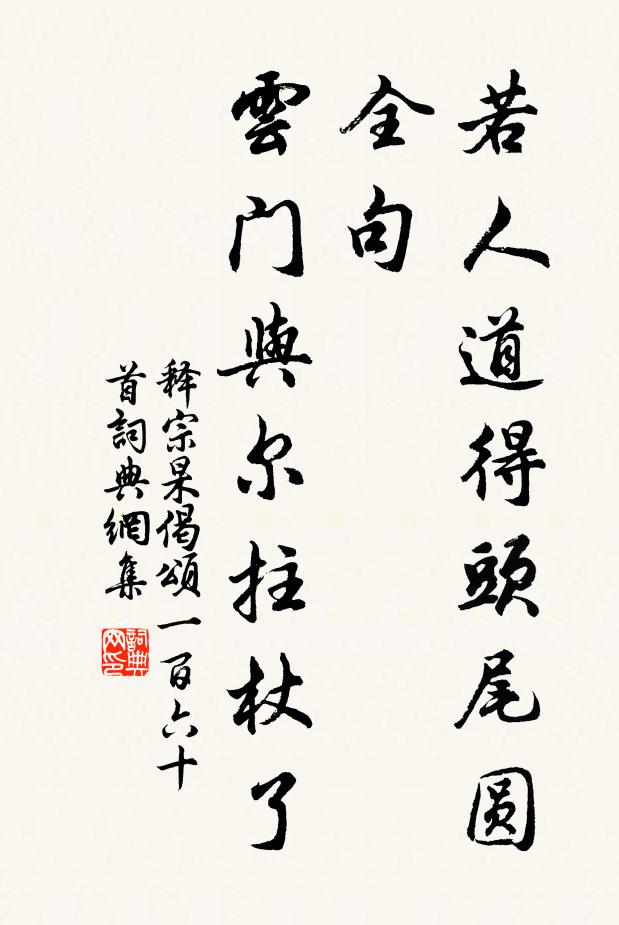 若人道得頭尾圆
全句
雲门與尔拄杖了
释宗杲偈頌一百六十
首詞典網集
詞典网印